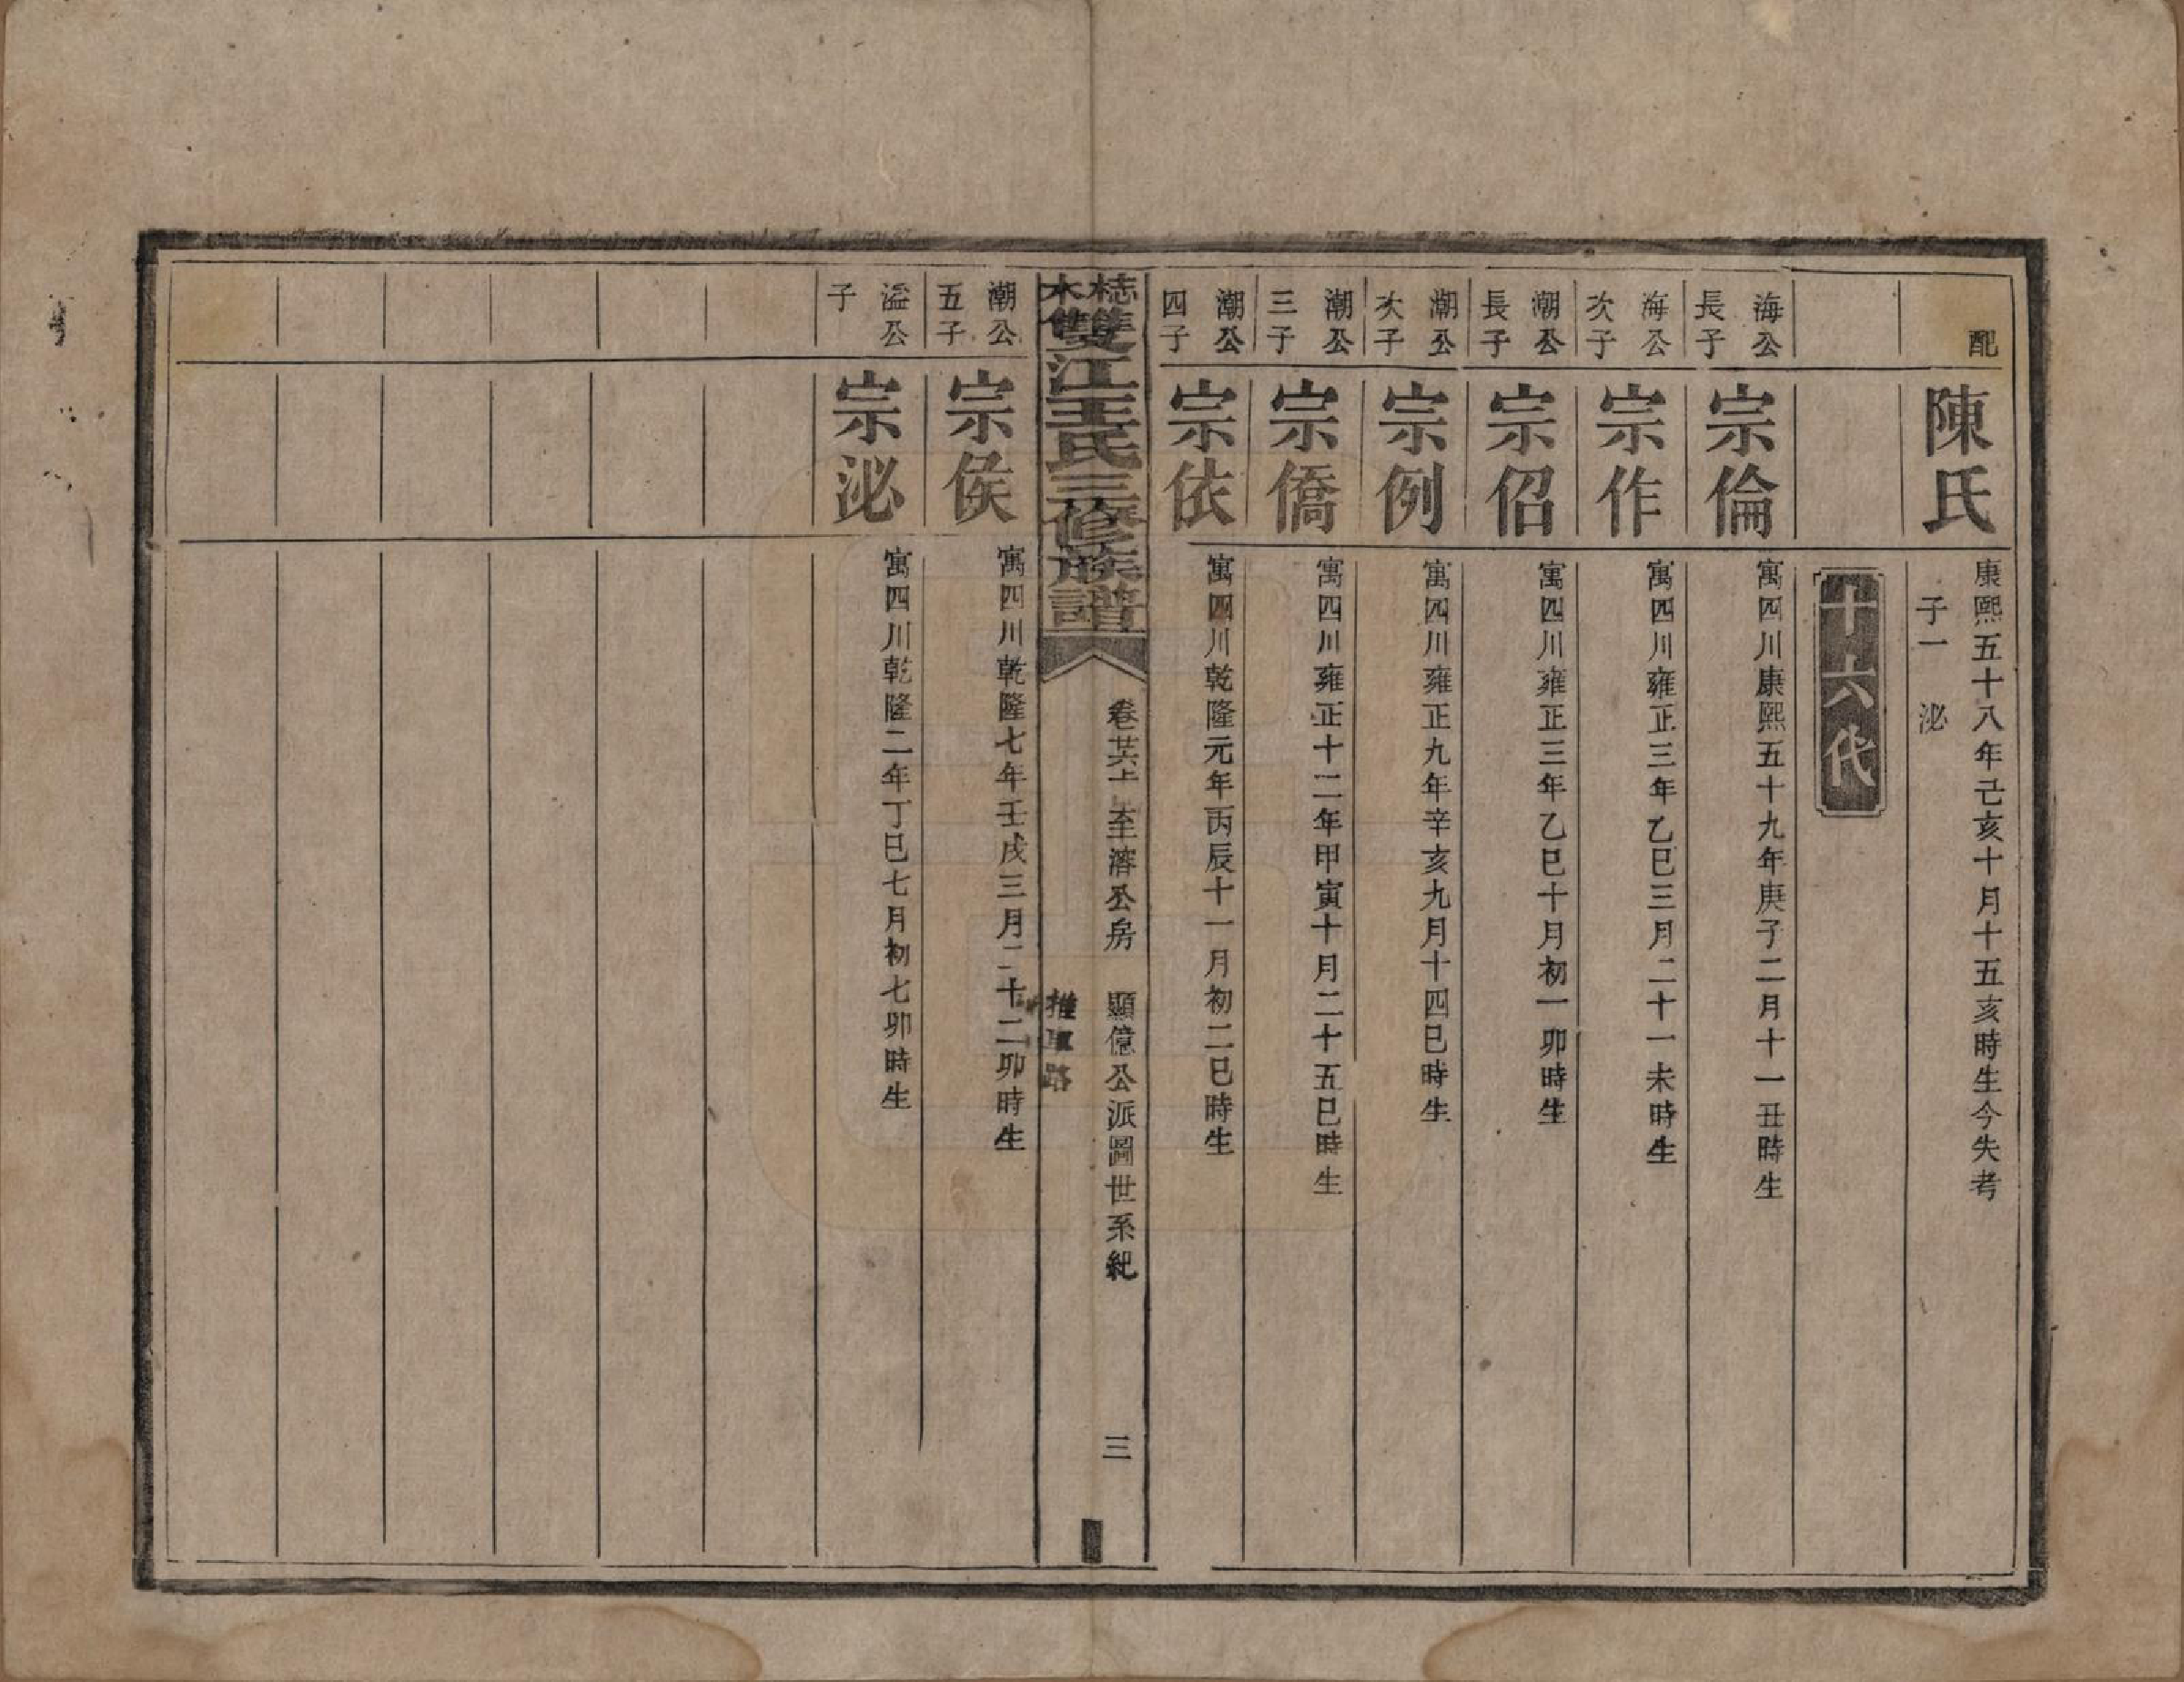 配
陳氏
康熙五十八年己亥十月十五亥時生今失考
子一　泌
十六代
海公
長子
宗倫
寓四川康熙五十九年庚子二月十一丑時生
海公
次子
宗作
寓四川雍正三年乙巳三月二十一未時生
潮公
長子
宗佋
寓四川雍正三年乙巳十月初一卯時生
潮公
次子
宗例
寓四川雍正九年辛亥九月十四巳時生
潮公
三子
宗僑
寓四川雍正十二年甲寅十月二十五巳時生
潮公
四子
宗依
寓四川乾隆元年丙辰十一月初二巳時生
梽木雙江王氏三修族譜
卷廿六上　至溶公房　顯億公派圖世系紀
推車路
三
潮公
五子
宗侯
寓四川乾隆七年壬戌三月二十二卯時生
溢公
子
宗泌
寓四川乾隆二年丁巳七月初七卯時生